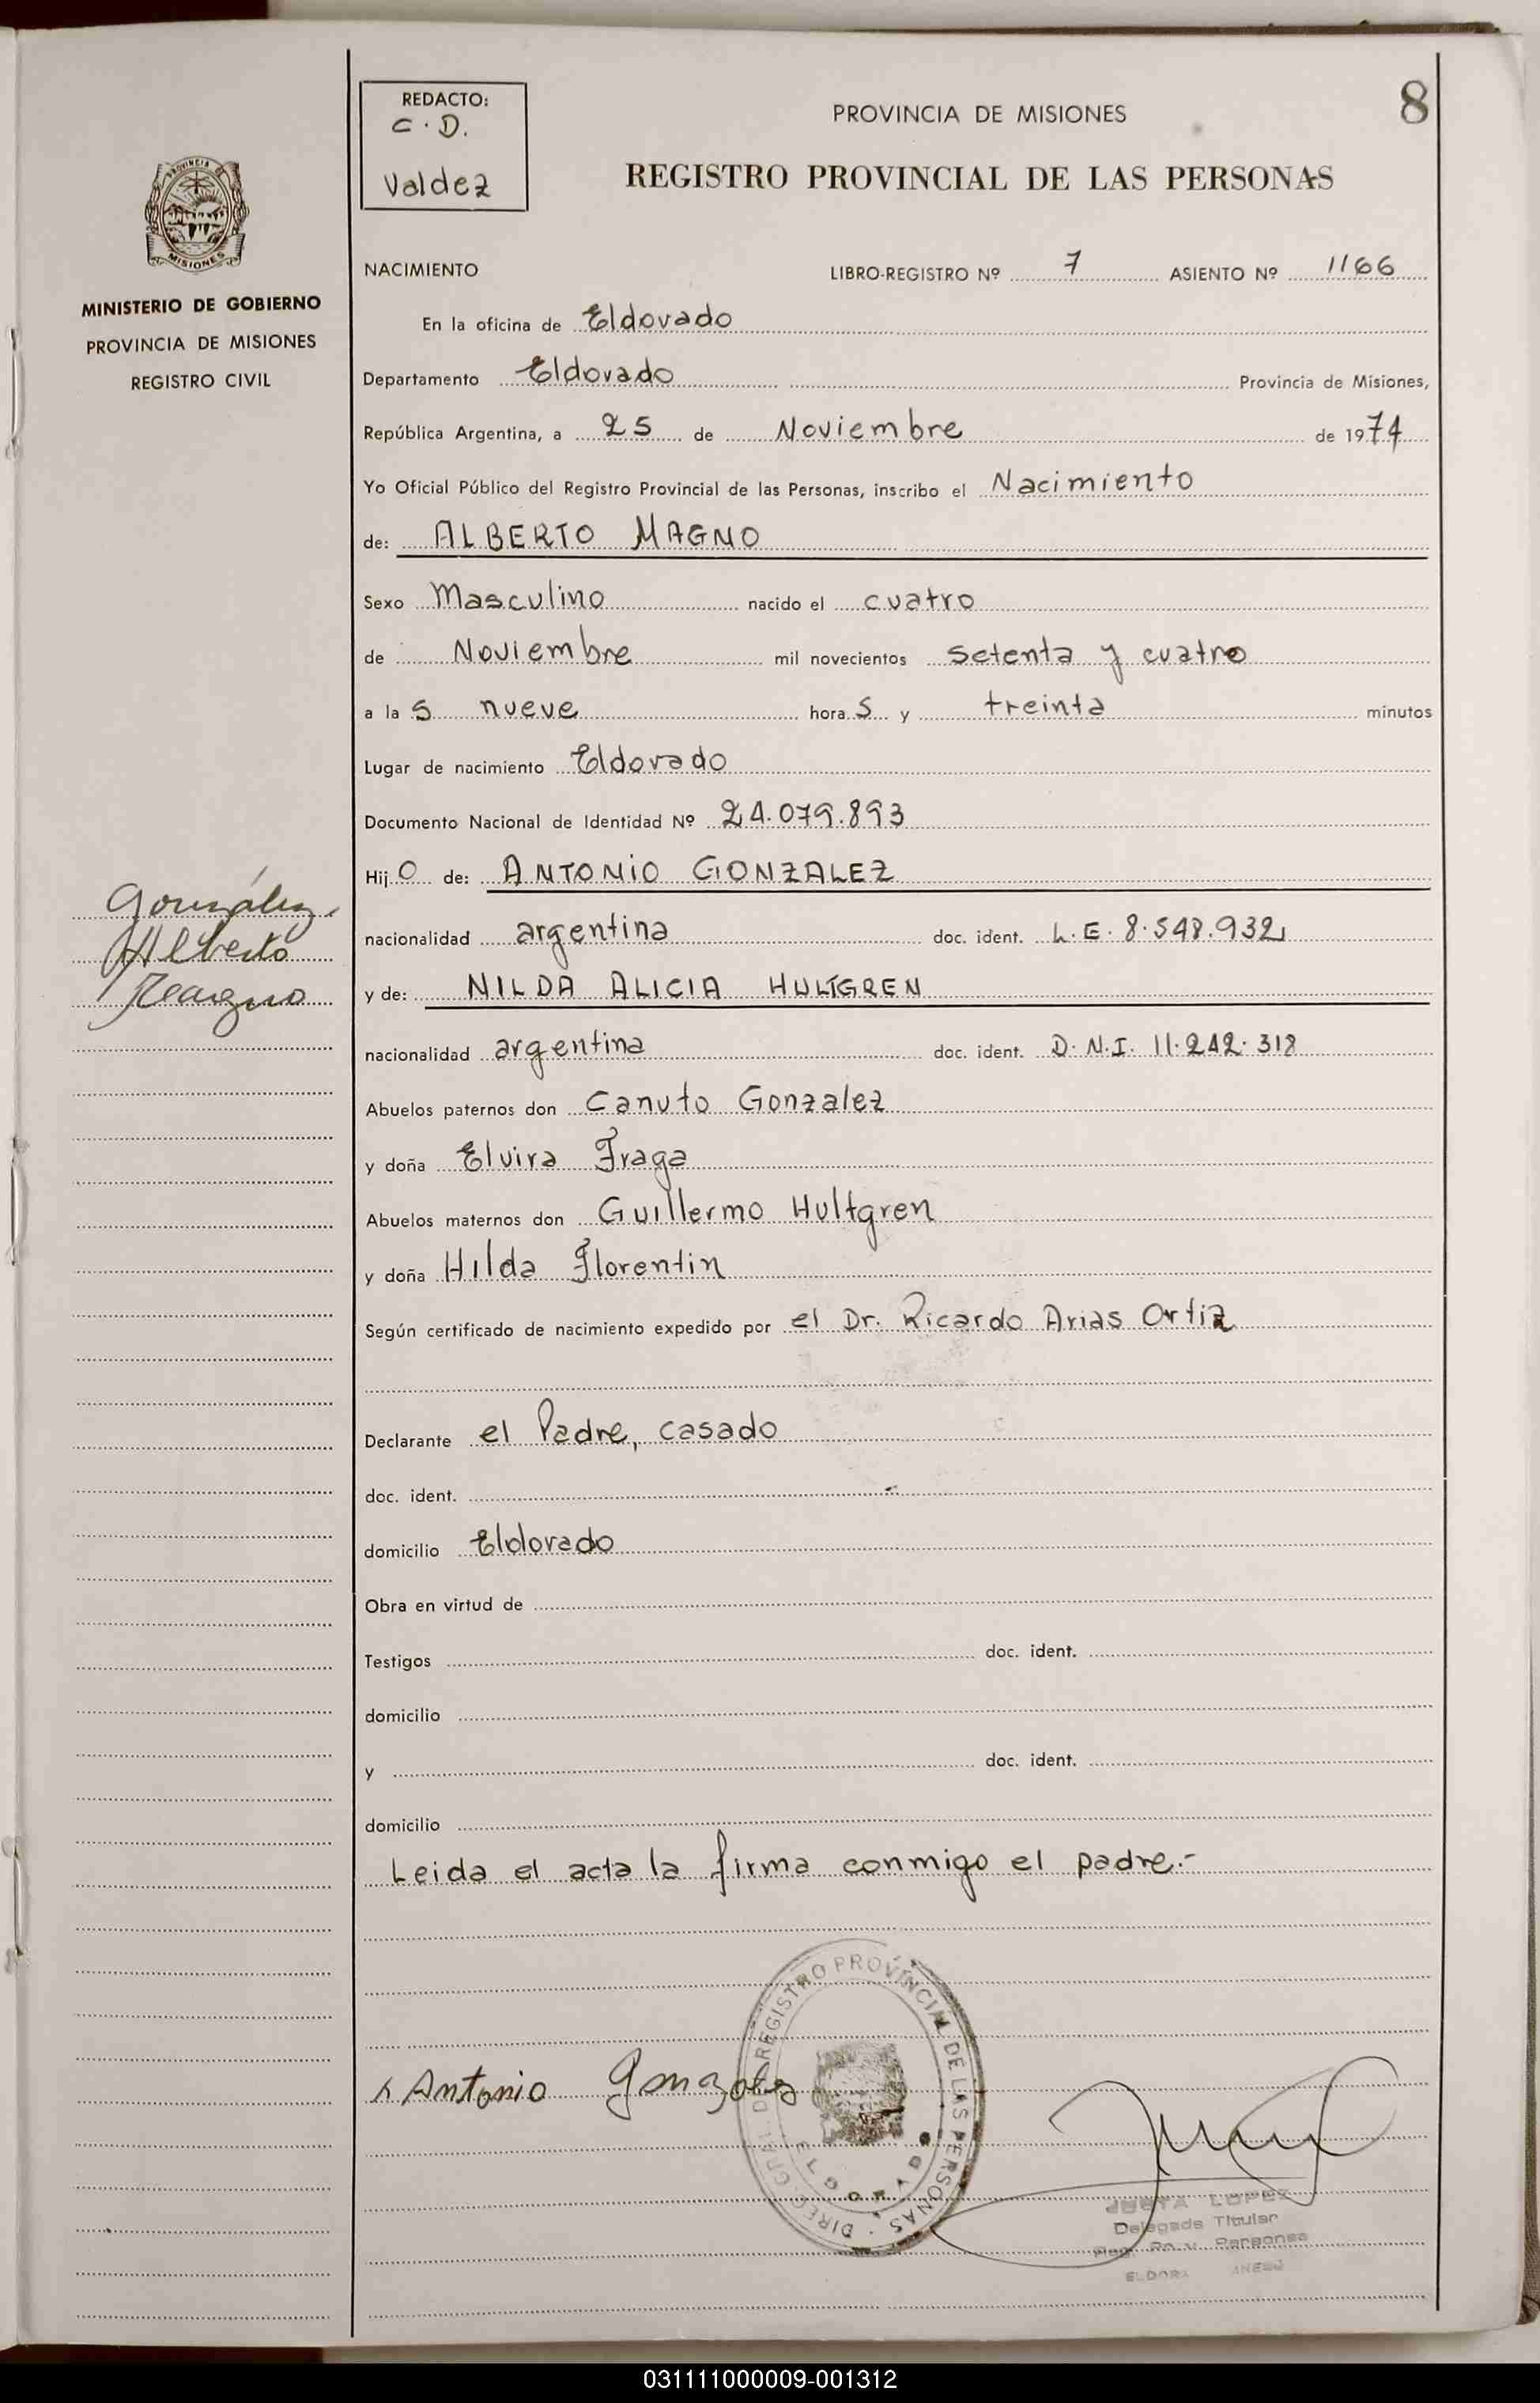 REDACTO:
C. D.
Valdez
PROVINCIA DE MISIONES
8
REGISTRO PROVINCIAL DE LAS PERSONAS
PROVINCIA DE MISIONES
MINISTERIO DE GOBIERNO
PROVINCIA DE MISIONES
REGISTRO CIVIL
NACIMIENTO LIBRO-REGISTRO Nº 7 ASIENTO Nº 1166
En la oficina de Eldorado
Departamento Eldorado Provincia de Misiones,
República Argentina, a 25 de Noviembre de 1974
Yo Oficial Público del Registro Provincial de las Personas, inscribo el Nacimiento
de: ALBERTO MAGNO
Sexo Masculino nacido el cuatro
de Noviembre mil novecientos setenta y cuatro
a la s nueve hora s y treinta minutos
Lugar de nacimiento Eldorado
Documento Nacional de Identidad Nº 24.079.893
Hij o de: ANTONIO GONZALEZ
González,
Alberto
Magno
nacionalidad argentina doc. ident. L.E. 8.548.932
y de: NILDA ALICIA HULTGREN
nacionalidad argentina doc. ident. D.N.I. 11.242.318
Abuelos paternos don Canuto Gonzalez
y doña Elvira Fraga
Abuelos maternos don Guillermo Hultgren
y doña Hilda Florentin
Según certificado de nacimiento expedido por el Dr. Ricardo Arias Ortiz
Declarante el Padre, casado
doc. ident.
domicilio Eldorado
Obra en virtud de
Testigos doc. ident.
domicilio
y doc. ident.
domicilio
Leida el acta la firma conmigo el padre.-
Antonio Gonzalez
DIREC. GRAL. DE REGISTRO PROVINCIAL DE LAS PERSONAS
ELDORADO
JUSTA LOPEZ
Delegada Titular
Personas
031111000009-001312